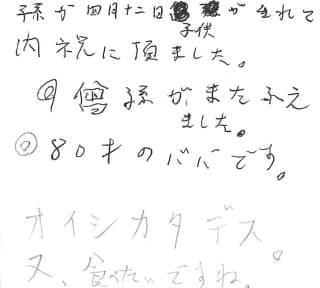 子孫が四月十二日子供が生れて
内祝に頂ました。
◎曾孫がまたふえ
ました。
◎80才のババです。
オイシカタデス。
又、食べたいですね。